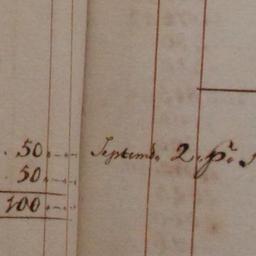 50.... Septemb. 2. pr. s
50....
100....